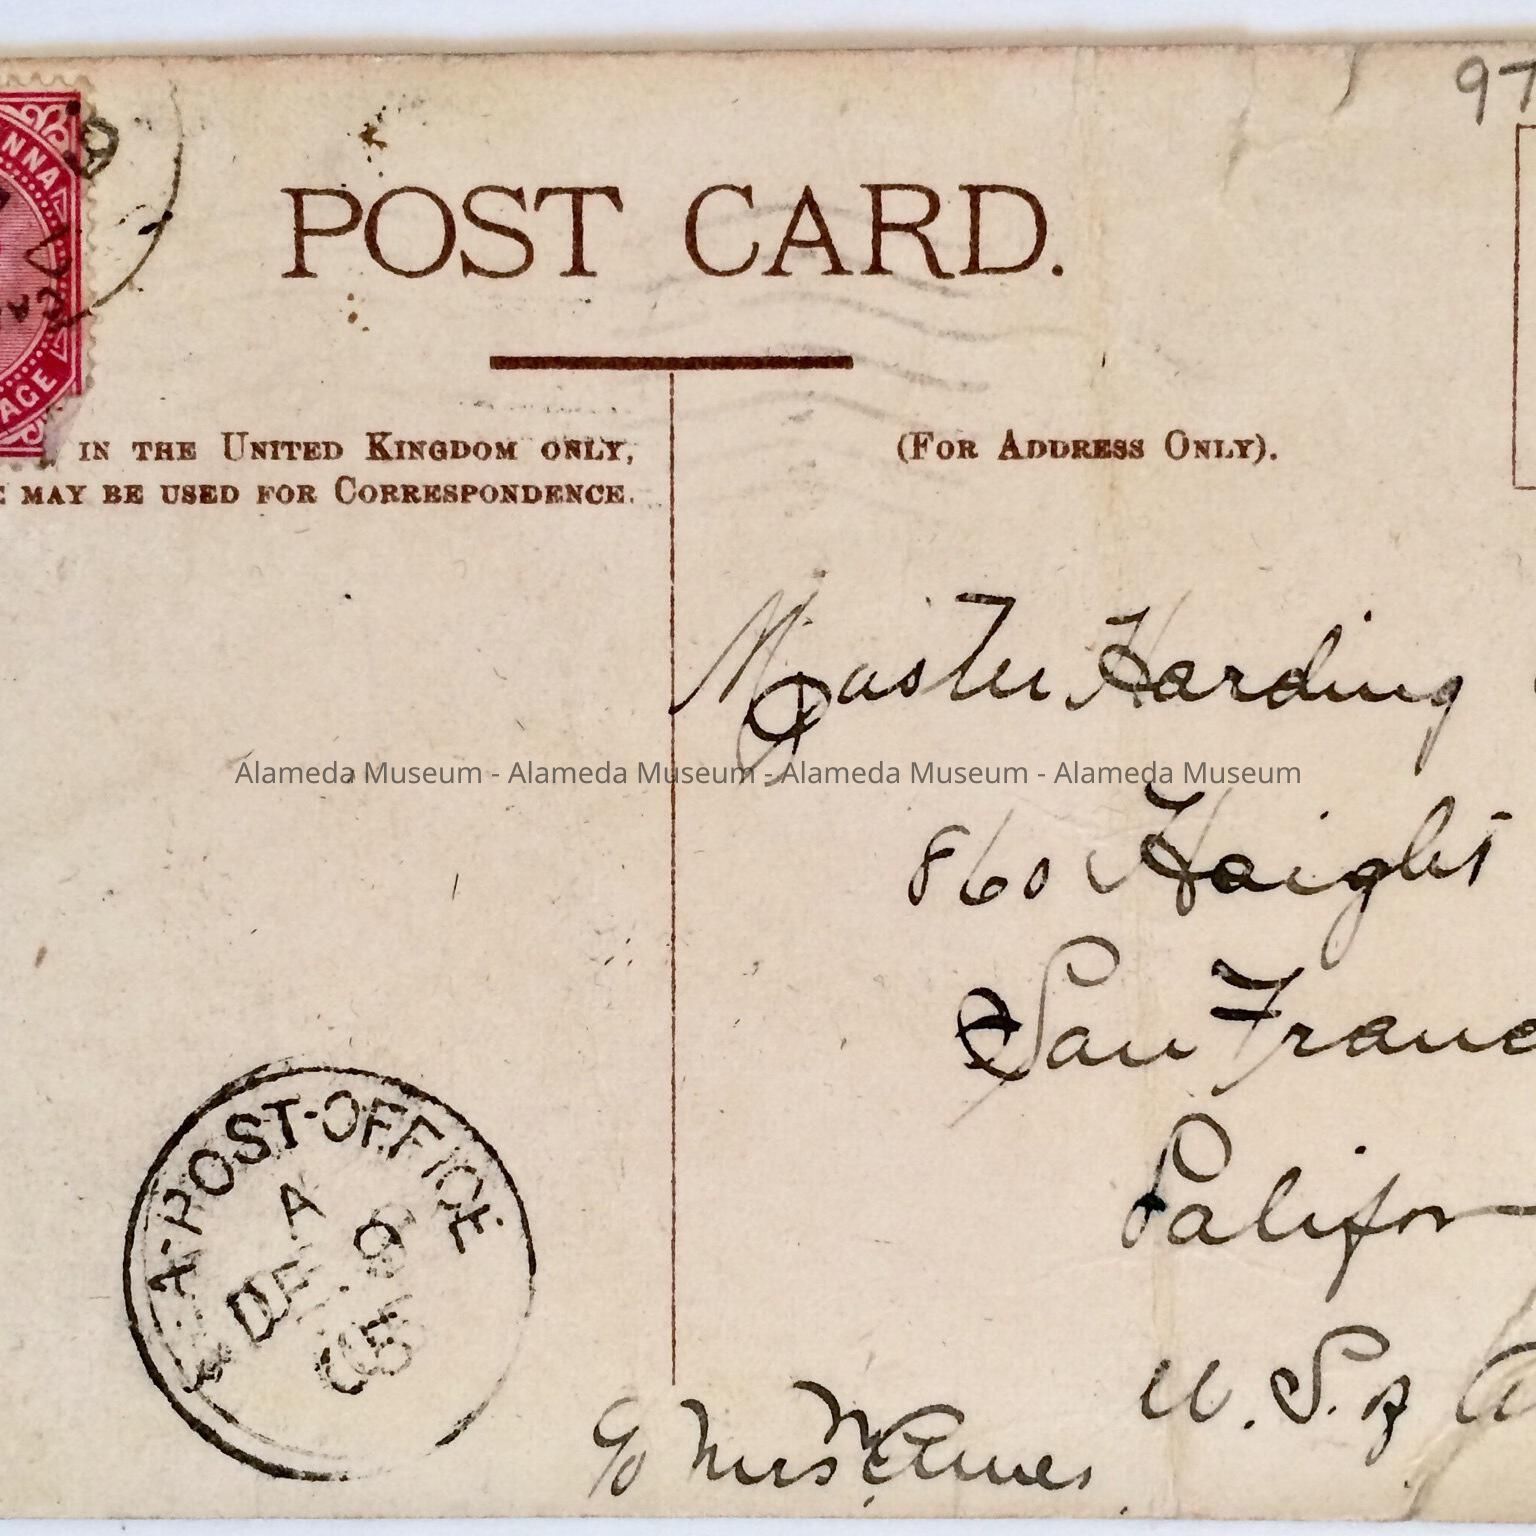 97
POST CARD.
NNA
AGE
IN THE UNITED KINGDOM ONLY,
MAY BE USED FOR CORRESPONDENCE.
(FOR ADDRESS ONLY).
Master Harding
Alameda Museum - Alameda Museum - Alameda Museum - Alameda Museum
860 Haight
San Franc
Califor
U. S. of A
POST-OFFICE
A
DE 9
05
c/o Mrs Ames